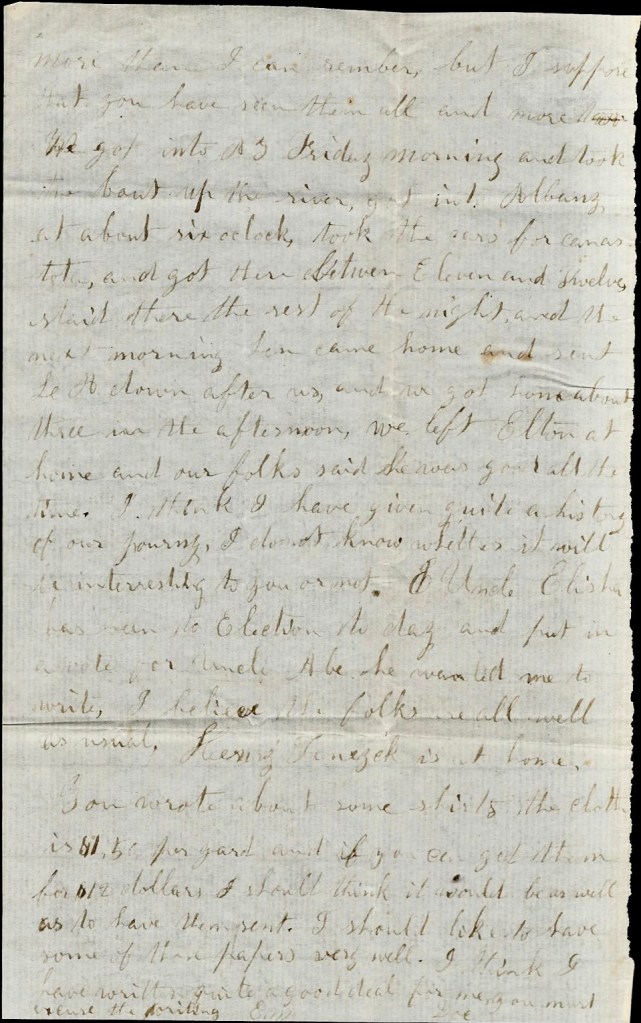 more than I can rember, but I suppose
that you have seen them all and more
We got into N Y Friday morning and took
the boat up the river, got into Albany
at about six oclock, took the cars for canas
tota, and got there between Eleven and Twelve,
staid there the rest of the night, and the
next morning came home and sent
down after us, and we got home about
three in the afternoon, we left Elton at
home and our folks said he was good all the
time. I think I have given quite a history
of our journy, I do not know whether it will
be interresting to you or not. Uncle Elisha
has been to Election to day and put in
a vote for Uncle Abe. he wanted me to
write, I believe the folks are all well
as usual, Henry is at home.
You wrote about some shirts, the cloth
is per yard and if you can get them
for $12 dollars I should think it would be as well
as to have them sent. I should like to have
some of those papers very well. I think I
have written quite a good deal for me, you must
excuse the writing